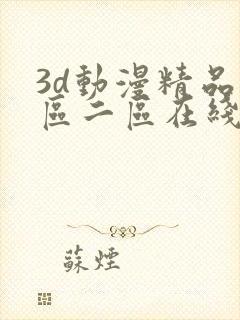 3d動漫精品
區二區在綫
蘇煙